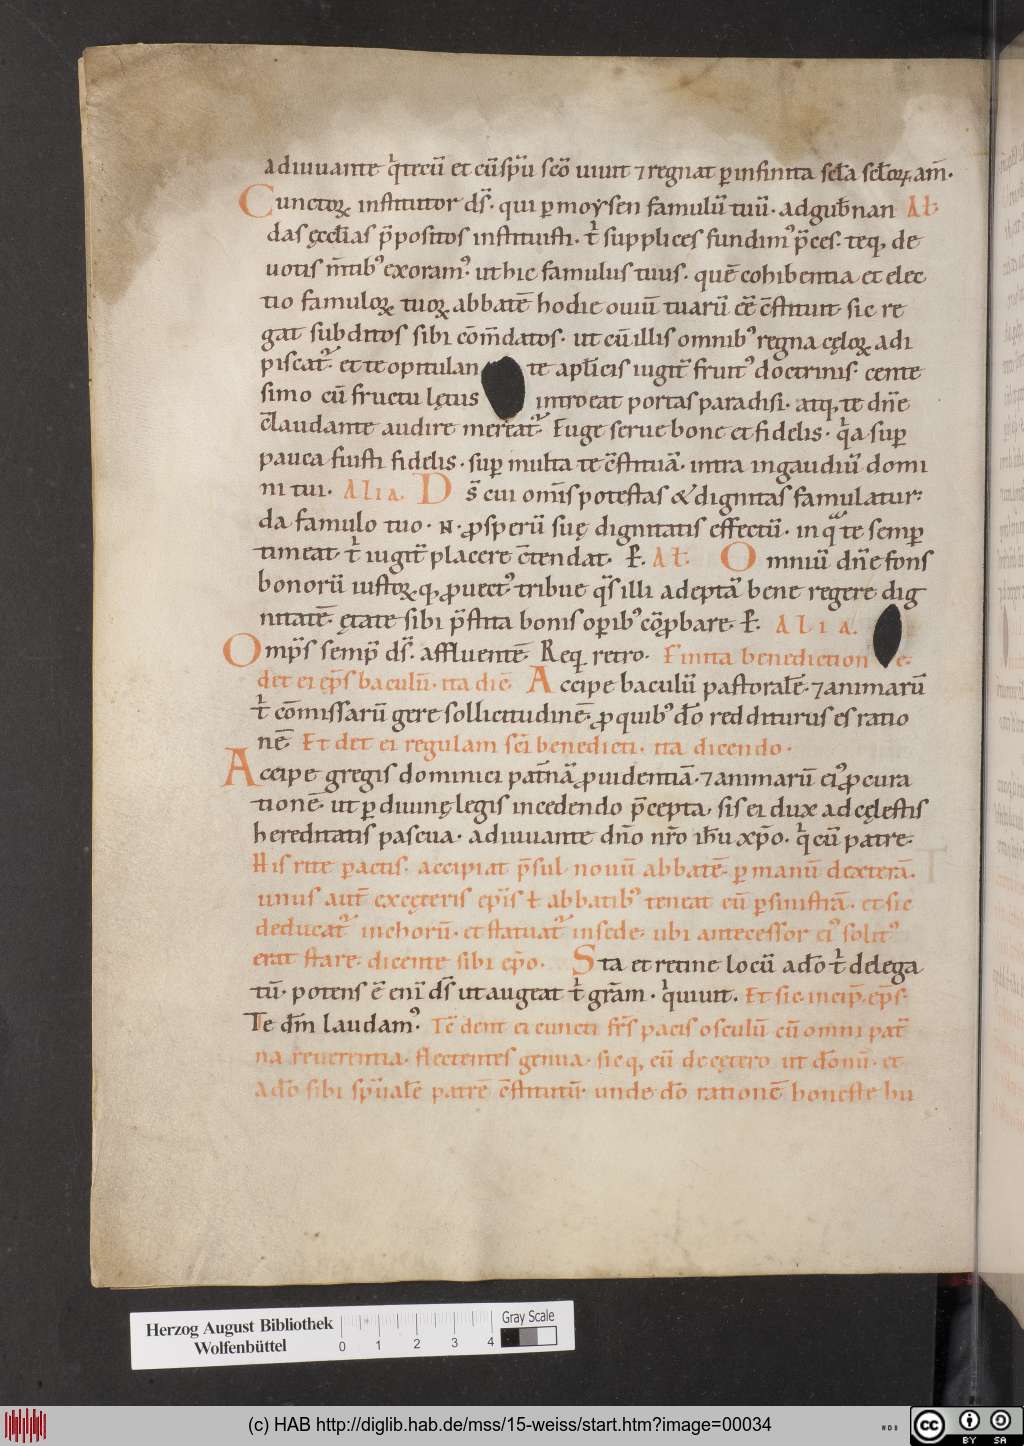 adiuuante q̇tecū et cū sp̄u sc̄o uiuit ⁊ regnat ꝑ infinita sc̄la sc̄loꝝ. am̄.
Cunctoꝝ institutor ds̄. qui ꝑ moẏsen famulū tuū. ad gub̄nan Al̄.
das ęccl̄ias p̄positos instituisti. t̓ supplices fundim᾽ p̄ces. teq, de
uotis m̄tib᾽ exoram᾽. ut hic famulus tuus. quē cohibentia et elec
tio famuloꝝ tuoꝝ abbatē hodie ouiū tuarū eē c̄stituit sic re
gat subditos sibi cōm̄datos. ut cū illis omnib᾽ regna cęloꝝ adi
piscat᾽. et te opitulan te apl̄icis iugit̄ fruit᾽ doctrinis. cente
simo cū fructu lętus introeat portas paradisi. atq, te dn̄e
c̄laudante audire mereat᾽. Euge serue bone et fidelis. q̓a suꝑ
pauca fuisti fidelis. suꝑ multa te c̄stituā. intra in gaudiū domi
ni tui. Alia. Ds̄ cui om̄is potestas & dignitas famulatur.
da famulo tuo. N. ꝓsperū suę dignitatis effectū. in q̄ te semꝑ
timeat. t̓ iugit̄ placere c̄tendat. P̄. Al̄. Omniū dn̄e fons
bonorū iustoꝝq, ꝓuect᾽ tribue q̄s illi adeptā bene regere dig
nitatē. ętate sibi p̄stita bonis oꝑib᾽ cōꝓbare. P̄. Alia.
Omp̄s semp̄ ds̄. affluentē. Req̓ retro. Finita benediction e.
det ei ep̄s baculū. ita diē. Accipe baculū pastoralē. ⁊ animarū
t̓ cōmissarū gere sollicitudinē. ꝓ quib᾽ dō redditurus es ratio
nē. Et det ei regulam sc̄i benedicti. ita dicendo.
Accipe gregis dominici pat̄nā ꝓuidentiā. ⁊ animarū ci᾽ ꝓcura
tionē. ut ꝑ diuinę legis incedendo p̄cepta. sis ei dux ad cęlestis
hereditatis pascua. adiuuante dn̄o nr̄o ih̄u xp̄o. q̓ cū patre.
His rite ꝑactis. accipiat p̄sul nouū abbatē. ꝑ manū dexterā.
unus aut̄ ex cęteris ep̄is ł abbatib᾽ teneat eū ꝑ sinistrā. et sic
deducat᾽ in chorū. et statuat᾽ in sede. ubi antecessor ci᾽ solit᾽
erat stare. dicente sibi ep̄o. Sta et retine locū a dō t̓ delega
tū. potens ē eni ds̄ ut augeat t̓ gr̄am. q̓ uiuit. Et sic incip̄ ep̄s.
Te dm̄ laudam᾽. Tc̄ dent ei cuncti fr̄s pacis osculū cū omni pat̄
na reuerentia. flectentes genua. sicq, eū de cętero ut dōnū. et
a dō sibi sp̄ualē patrē c̄stitutū. unde dō rationē honeste hu
Herzog August Bibliothek
Wolfenbüttel
0 1 2 3 4
Gray Scale
(c) HAB http://diglib.hab.de/mss/15-weiss/start.htm?image=00034
cc BY SA